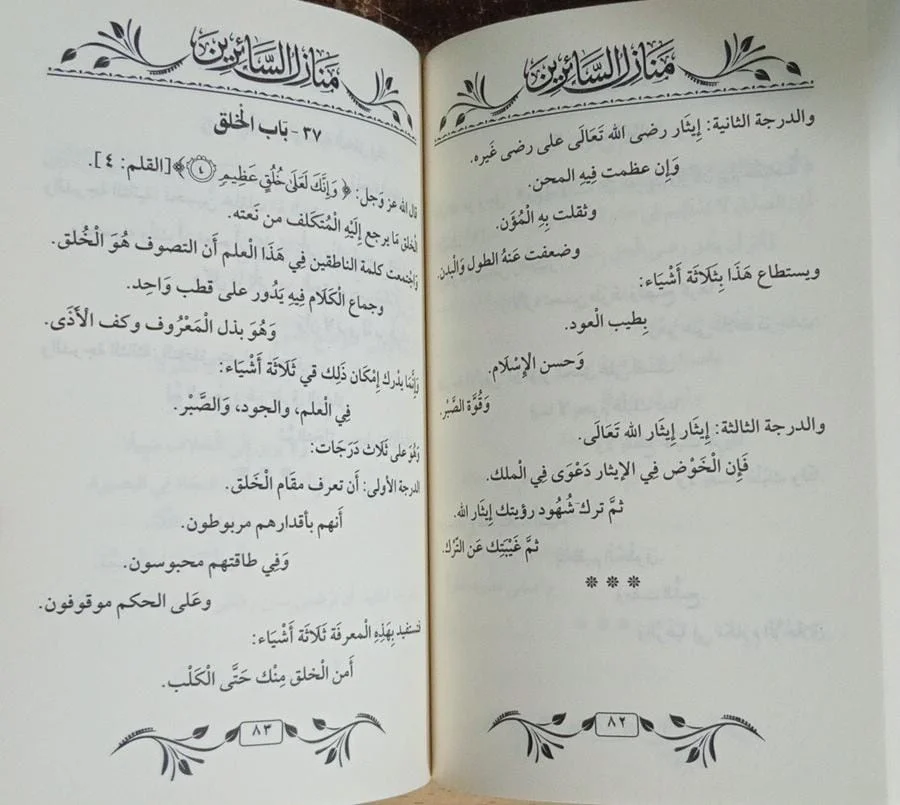 منازل السائرين
والدرجة الثانية: إِيثَار رضى الله تَعَالَى على رضى غَيره.
وَإِن عظمت فِيهِ المحن.
وثقلت بِهِ الْمُؤَن.
وضعفت عَنهُ الطول وَالْبدن.
ويستطاع هَذَا بِثَلَاثَة أَشْيَاء:
بِطيب الْعود.
وَحسن الْإِسْلَام.
وَقُوَّة الصَّبْر.
والدرجة الثالثة: إِيثَار إِيثَار الله تَعَالَى.
فَإِن الْخَوْض فِي الإيثار دَعْوَى فِي الْملك.
ثمَّ ترك شُهُود رؤيتك إِيثَار الله.
ثمَّ غَيْبَتك عَن التّرْك.
***
٨٢
مَنَازِل السَّائِرِين
٣٧- بَاب الْخلق
قال الله عز وجل: ﴿ وَإِنَّكَ لَعَلَىٰ خُلُقٍ عَظِيمٍ ٤ ﴾[القلم: ٤].
الْخلق مَا يرجع إِلَيْهِ الْمُتَكَلف من نَعته.
وَاجْتمعت كلمة الناطقين فِي هَذَا الْعلم أَن التصوف هُوَ الْخُلق.
وجماع الْكَلَام فِيهِ يَدُور على قطب وَاحِد.
وَهُوَ بذل الْمَعْرُوف وكف الْأَذَى.
وَإِنَّمَا يدْرك إِمْكَان ذَلِك قي ثَلَاثَة أَشْيَاء:
فِي الْعلم، والجود، وَالصَّبْر.
وَهُوَ على ثَلَاث دَرَجَات:
الدرجة الأولى: أَن تعرف مقَام الْخَلق.
أَنهم بأقدارهم مربوطون.
وَفِي طاقتهم محبوسون.
وعَلى الحكم موقوفون.
فتستفيد بِهَذِهِ الْمعرفَة ثَلَاثَة أَشْيَاء:
أَمن الْخلق مِنْك حَتَّى الْكَلْب.
٨٣